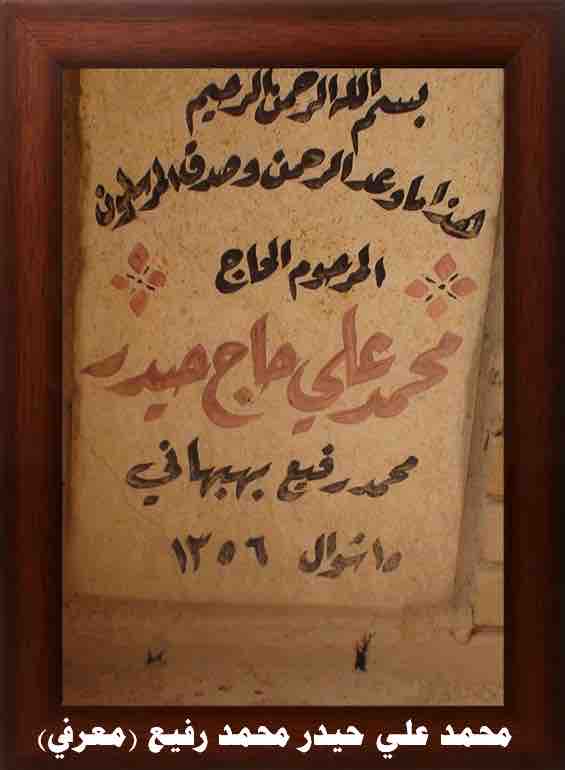 بسم الله الرحمن الرحيم
هذا ما وعد الرحمن وصدق المرسلون
المرحوم الحاج
محمد علي حاج حيدر
محمد رفيع بهبهاني
١٥ شوال ١٣٥٦
محمد علي حيدر محمد رفيع (معرفي)